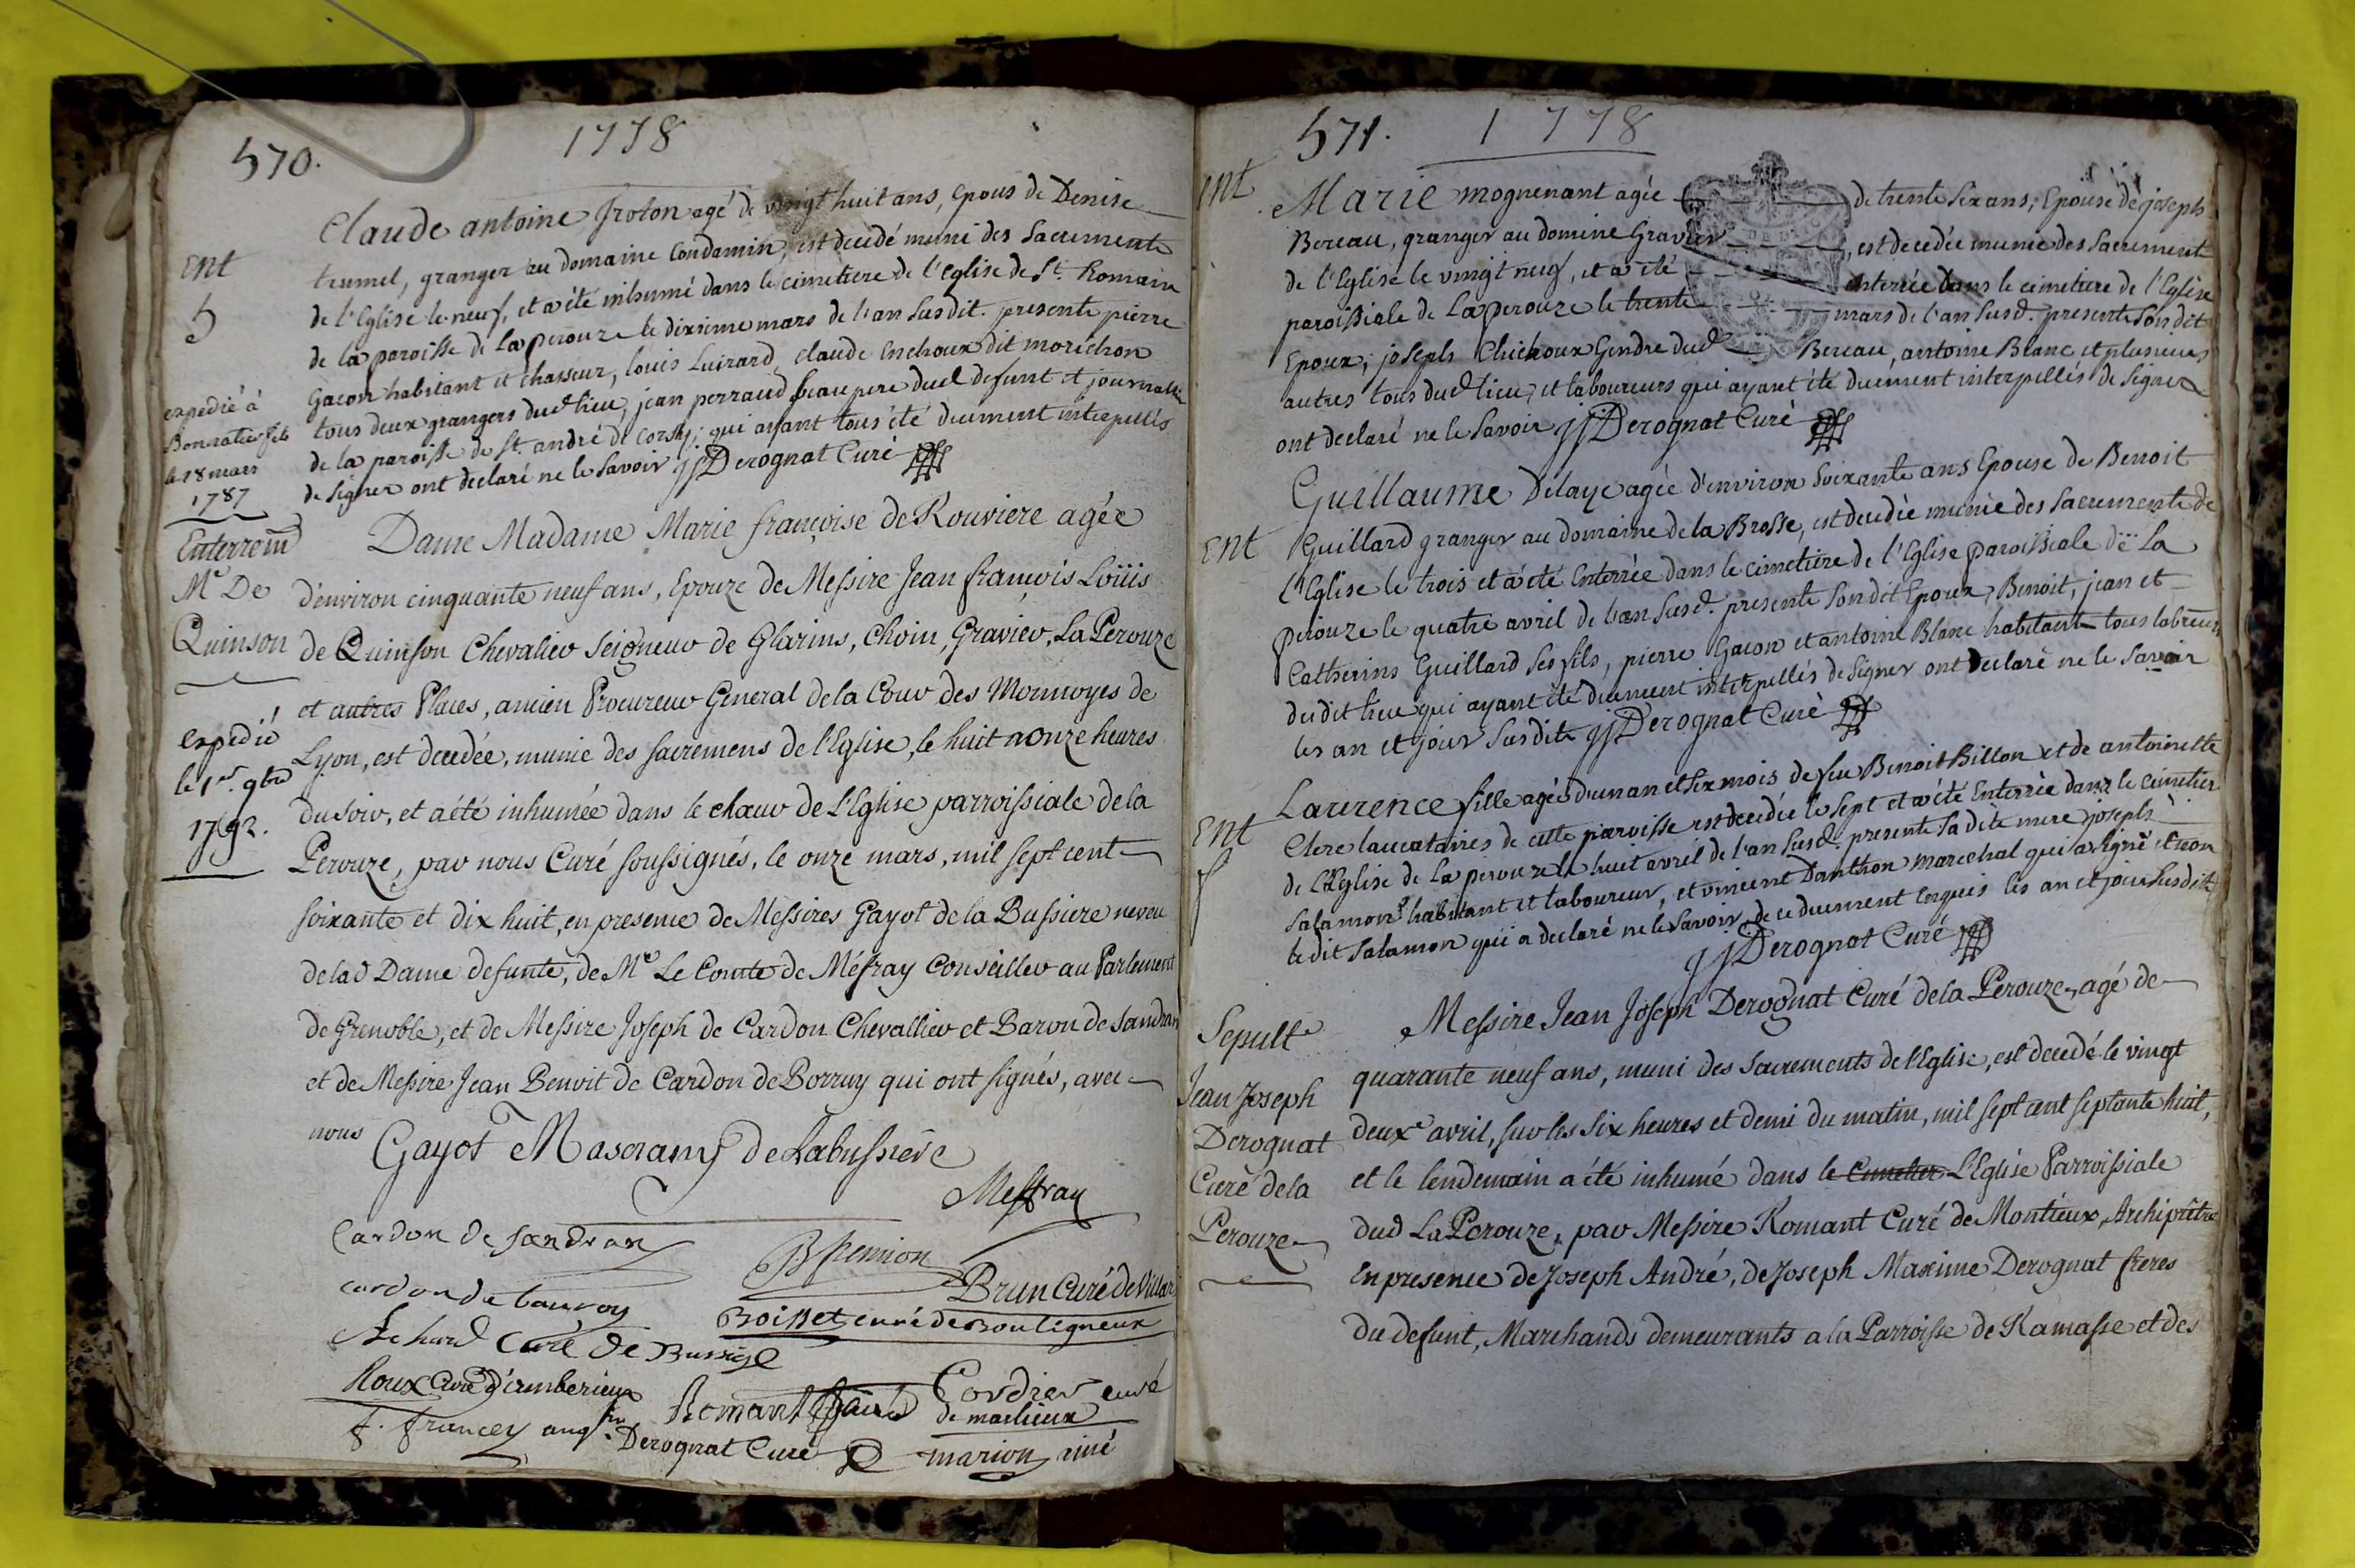 570. 1778
Claude antoine froton agé de vingt huit ans, Epous de Denise
trumel, granger au domaine Condamin, est decedé muni des Sacrements
de l'Eglise le neuf, et a été inhumé dans le cimetiere de l'eglise de St. Romain
de la paroisse de La perouze le dixieme mars de l'an susdit. presents pierre
Gacon habitant et chasseur, louis Luirard, claude Enchoux dit morichon
tous deux grangers dud lieu, jean perraud beaupere dud defunt et journalier
de la paroisse de St. andré de Corsy; qui ayant tous été duement interpellés
de signer ont declaré ne le savoir jjDerognat Curé
Ent
5
expedié à
Bonnatier fils
le 18 mars
1787
Enterrem
Me De
Quinson
expedié
le 1er. 9bre
1792.
Dame Madame Marie françoise de Rouviere agée
d'environ cinquante neuf ans, Epouze de Messire Jean françois Loüis
de Quinson Chevalier Seigneur de Glarins, Choin, Gravier, La Perouze
et autres Places, ancien Procureur General de la Cour des Monnoyes de
Lyon, est decedée, munie des sacremens de l'Eglise, le huit a onze heures
du soir, et a été inhumée dans le chœur de l'Eglise parroissiale de la
Perouze, par nous Curé soussignés, le onze mars, mil sept cent
soixante et dix huit, en presence de Messires Gayot de la Bussiere neveu
de lad Dame defunte, de Mr Le Comte de Méfray Conseiller au Parlement
de Grenoble, et de Messire Joseph de Cardon Chevallier et Baron de Sandran
et de Messire Jean Benoit de Cardon de Borruy qui ont signés, avec
nous
Gayot Mascrany de Labussière
Meffray
Cardon de Sandran
cardon de bauroy
Brun Curé de Villars
Boisset curé de Bouligneux
Achard Curé de Bussige
Roux Curé d'amberieux
Romant
Cordier curé
de marlieux
f. francey aug
Derognat Curé
marion ainé
571. 1778
Ent
Marie mognenant agée de trente six ans, Epouse de joseph
Bereau, granger au domine Gravier, est decedée munie des sacrement
de l'Eglise le vingt neuf, et a été enterrée dans le cimetiere de l'Eglise
paroissiale de La perouze le trente mars de l'an susd. presents son dit
Epoux, joseph Chichoux Gendre dud Bereau, antoine Blanc et plusieurs
autres tous dud lieu, et laboureurs qui ayant été duement interpellés de signer
ont declaré ne le savoir jjDerognat Curé
Ent
Guillaume Delaye agée d'environ soixante ans Epouse de Benoit
Guillard granger au domaine de la Brosse, est decedée munie des sacrements de
l'Eglise le trois et a été Enterrée dans le cimetiere de l'Eglise paroissiale de La
perouze le quatre avril de l'an susd. presents son dit Epoux, Benoit, jean et
Catherins Guillard ses fils, pierre Gacon et antoine Blanc habitants tous labreurs
dudit lieu qui ayant été duement interpellés de signer ont declaré ne le savoir
les an et jour susdits jjDerognat Curé
Ent
f
Laurence fille agée d'un an et six mois de feu Benoit Billon et de antoinette
Clere laucataires de cette paroisse est decedée le sept et a été Enterrée dans le cimetier
de l'Eglise de La perouze le huit avril de l'an susd. presents sadite mere joseph
Salamon habitant et laboureur, et vincent Danthon marechal qui a signé et non
ledit Salamon qui a declaré ne le savoir de ce duement Enquis les an et jour susdits
jjDerognat Curé
Sepult
Jean Joseph
Derognat
Curé de la
Perouze
Messire Jean Joseph Derognat Curé de la Perouze, agé de
quarante neuf ans, muni des sacrements de l'Eglise, est decedé le vingt
deuxe avril, sur les six heures et demi du matin, mil sept cent septante huit,
et le lendemain a été inhumé dans le Cimetier L'Eglise Parroissiale
dud La Perouze, par Messire Romant Curé de Montieux, Archiprêtre
En presence de Joseph André, de Joseph Maxime Derognat freres
du defunt, Marchands demeurants a la Parroisse de Ramasse et des